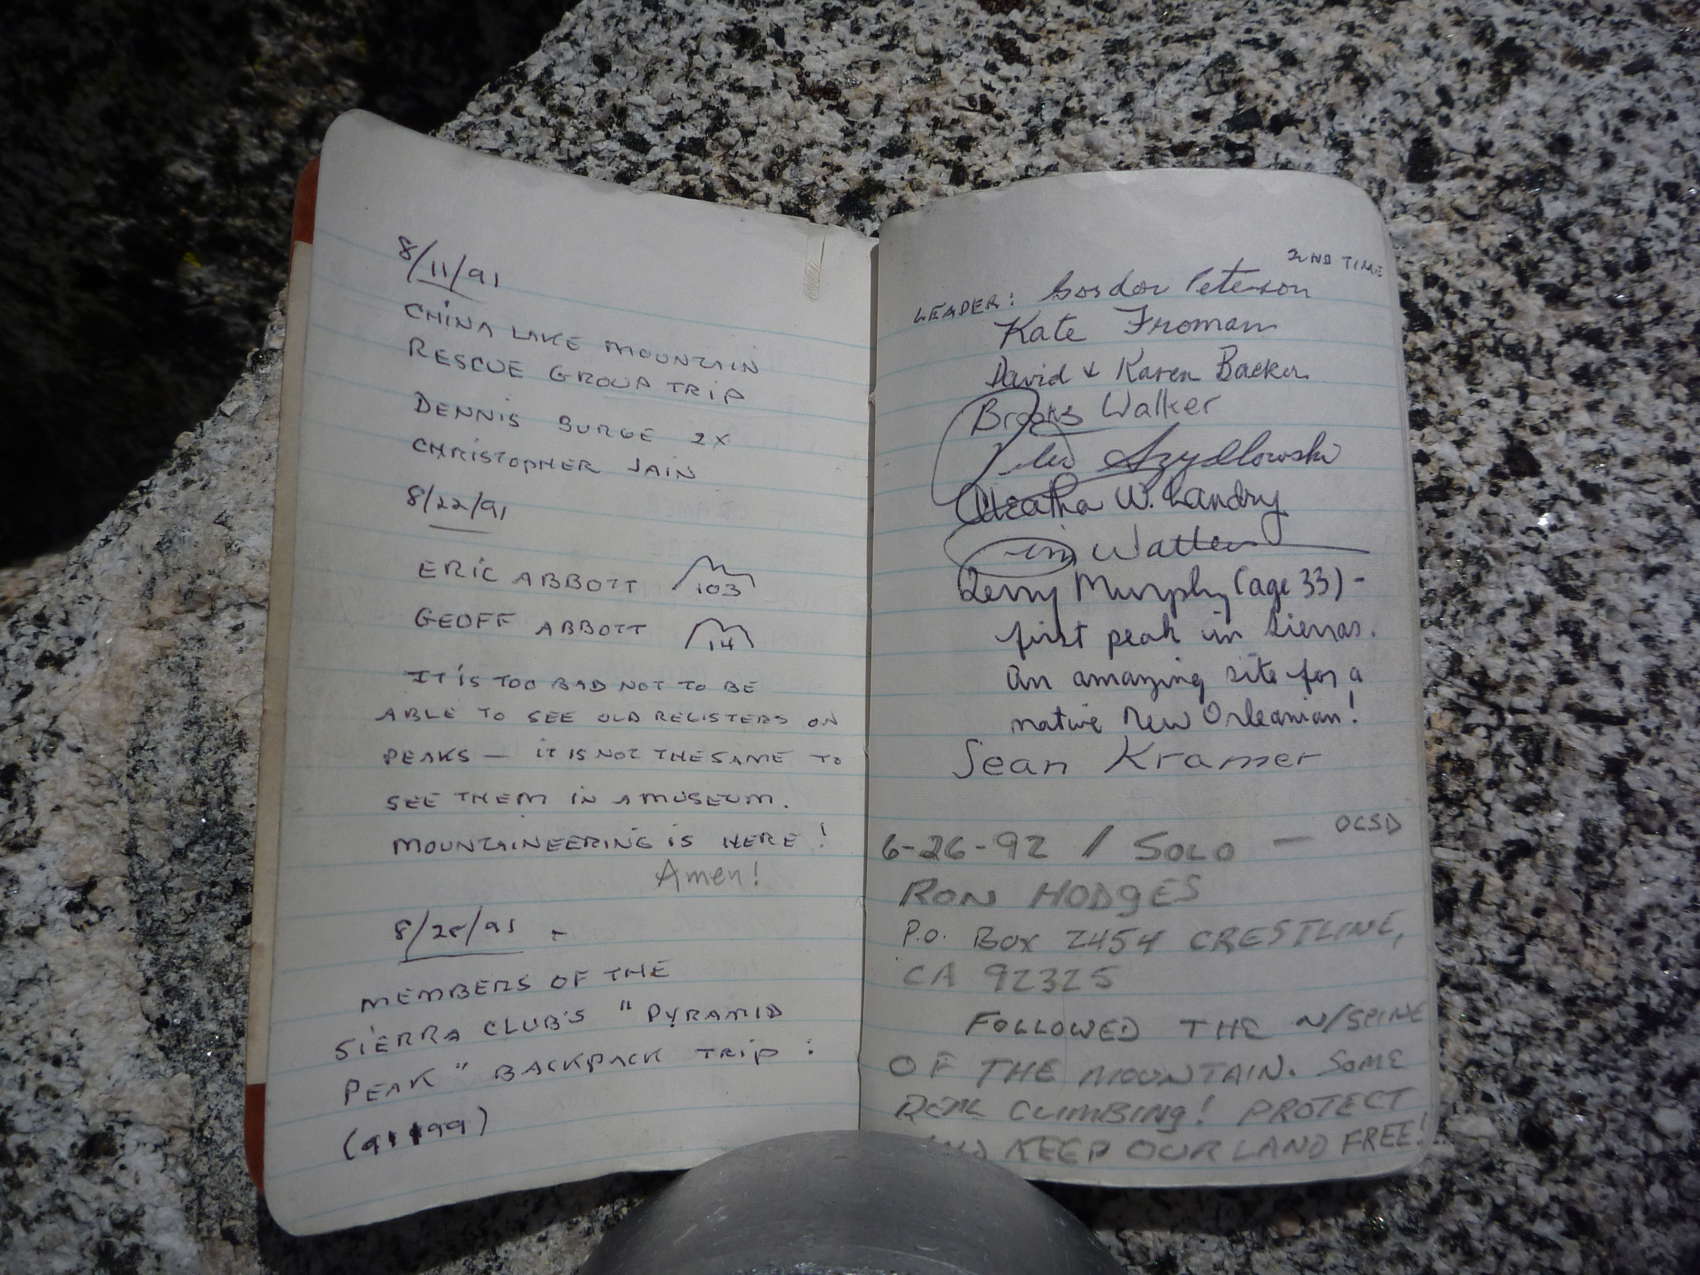 8/11/91
CHINA LAKE MOUNTAIN
RESCUE GROUP TRIP
DENNIS BURGE 2X
CHRISTOPHER JAIN
8/22/91
ERIC ABBOTT 103
GEOFF ABBOTT 14
IT IS TOO BAD NOT TO BE
ABLE TO SEE OLD REGISTERS ON
PEAKS — IT IS NOT THE SAME TO
SEE THEM IN A MUSEUM.
MOUNTAINEERING IS HERE!
Amen!
MEMBERS OF THE
SIERRA CLUB'S "PYRAMID
PEAK" BACKPACK TRIP:
2ND TIME
LEADER: Gordon Peterson
Kate Froman
David & Karen Backer
Brooks Walker
Szydlowski
W. Landry
Murphy (age 33) -
first peak in Sierras.
An amazing site for a
native New Orleanian!
Sean Kramer
6-26-92 / SOLO — OCSD
RON HODGES
P.O. BOX 2454 CRESTLINE,
CA 92325
FOLLOWED THE N/SPINE
OF THE MOUNTAIN. SOME
REAL CLIMBING! PROTECT
KEEP OUR LAND FREE!